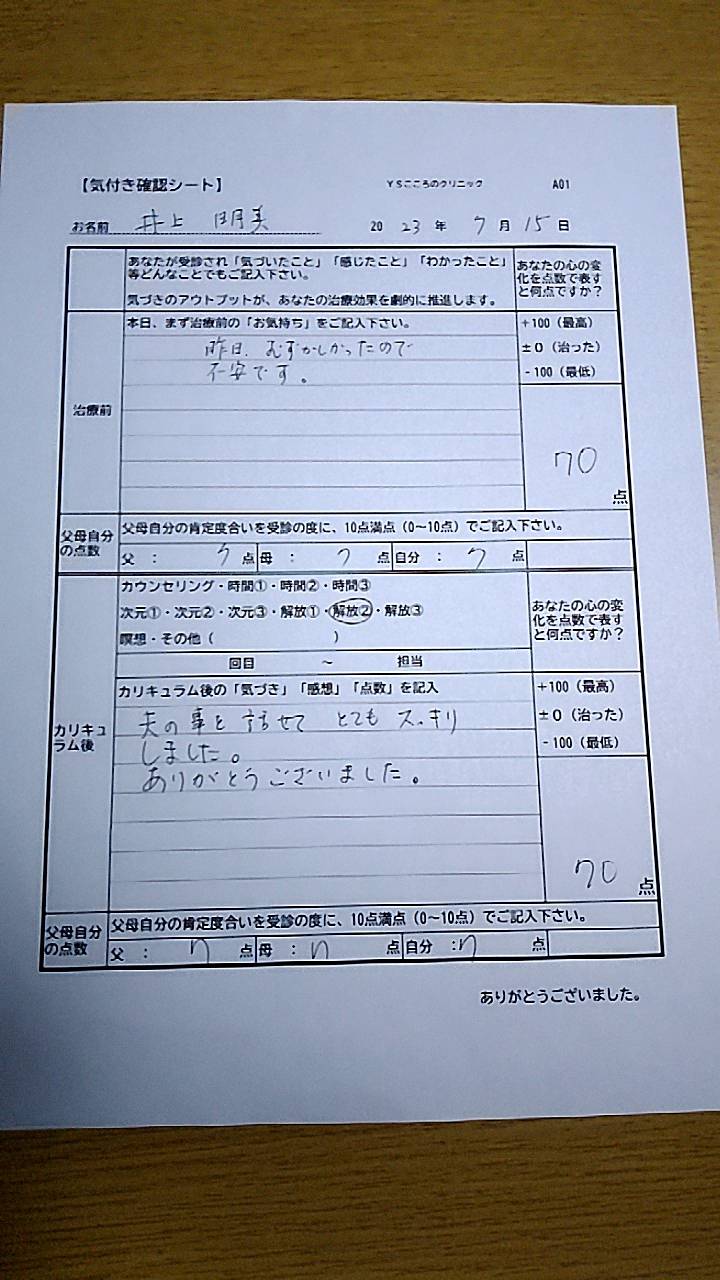 【気付き確認シート】 YSこころのクリニック A01
お名前 井上 明美 2023年7月15日
あなたが受診され「気づいたこと」「感じたこと」「わかったこと」
等どんなことでもご記入下さい。
気づきのアウトプットが、あなたの治療効果を劇的に推進します。
あなたの心の変
化を点数で表す
と何点ですか？
治療前
本日、まず治療前の「お気持ち」をご記入下さい。
昨日、むずかしかったので
不安です。
+100（最高）
±0（治った）
-100（最低）
70点
父母自分
の点数
父母自分の肯定度合いを受診の度に、10点満点（0～10点）でご記入下さい。
父：7点 母：7点 自分：7点
カリキュ
ラム後
カウンセリング・時間①・時間②・時間③
次元①・次元②・次元③・解放①・解放②・解放③
瞑想・その他（ ）
回目 ～ 担当
あなたの心の変
化を点数で表す
と何点ですか？
カリキュラム後の「気づき」「感想」「点数」を記入
夫の事を話せて とてもスッキリ
しました。
ありがとうございました。
+100（最高）
±0（治った）
-100（最低）
70点
父母自分
の点数
父母自分の肯定度合いを受診の度に、10点満点（0～10点）でご記入下さい。
父：7点 母：7点 自分：7点
ありがとうございました。